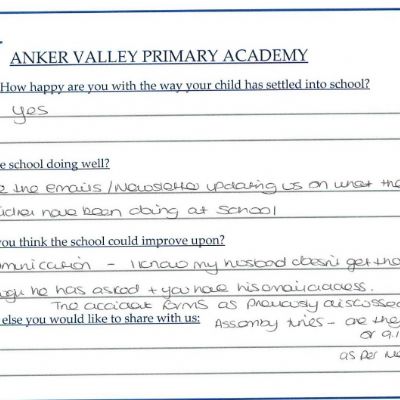 ANKER VALLEY PRIMARY ACADEMY
How happy are you with the way your child has settled into school?
yes
e school doing well?
the emails / Newsletter updating us on what the
have been doing at School
you think the school could improve upon?
mmunication - I know my husband doesn't get the
he has asked + you have his email address.
The accident forms as previously discussed
else you would like to share with us:
Assembly times - are the
or 9.1
as per